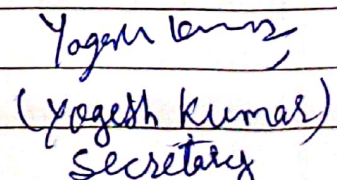 Yogesh Kumar
(Yogesh Kumar)
Secretary